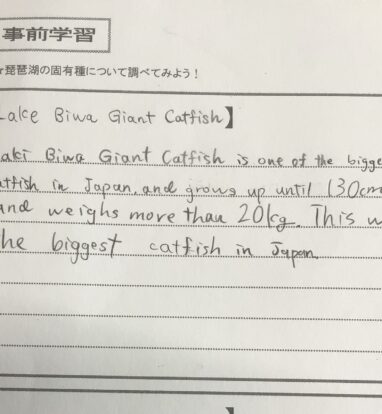 事前学習
琵琶湖の固有種について調べてみよう！
Lake Biwa Giant Catfish】
aki Biwa Giant Catfish is one of the bigge
atfish in Japan, and grows up until 130cm
and weighs more than 20kg. This w
the biggest catfish in Japan.
】